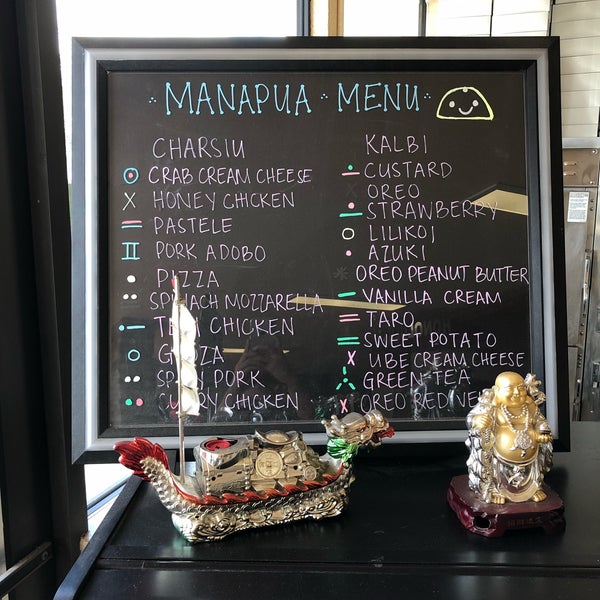 MANAPUA · MENU
CHARSIU
CRAB CREAM CHEESE
HONEY CHICKEN
PASTELE
PORK ADOBO
PIZZA
SPINACH MOZZARELLA
CHICKEN
PORK
CHICKEN
KALBI
CUSTARD
OREO
STRAWBERRY
LILIKOI
AZUKI
OREO PEANUT BUTTER
VANILLA CREAM
TARO
SWEET POTATO
UBE CREAM CHEESE
GREEN TEA
OREO RED